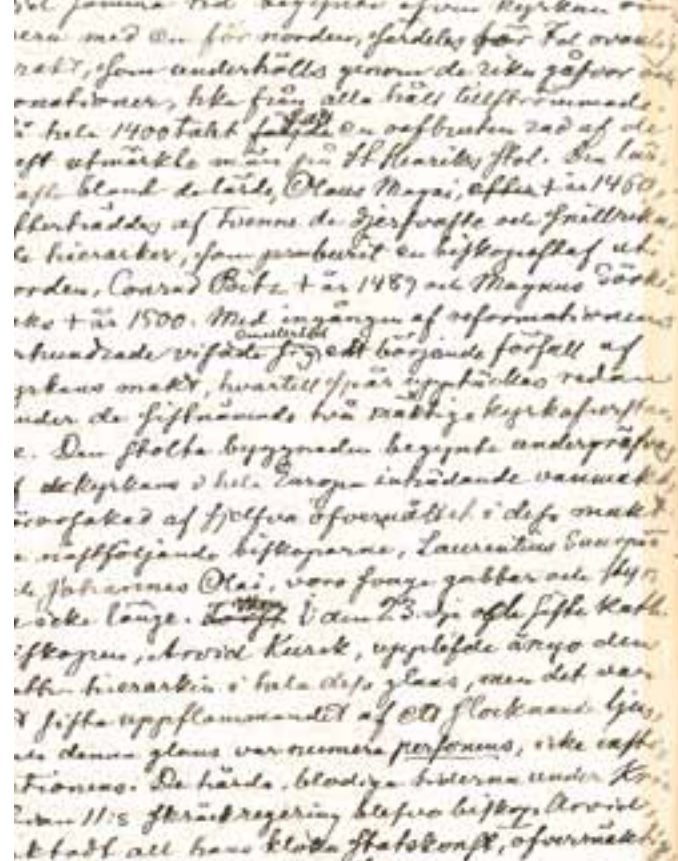 med en för norden, särdeles för
som underhölls genom de rika gåfvor
onationer, hka från alla håll tillströmmade.
hela 1400 talet följde en oafbruten rad af de
utmärkte män på St Henriks stol. Den lär-
bland de lärde, Olaus Magni, efter † år 1460,
fterträddes af tvenne de djerfvaste och snillrika
hierarker, som preburit en biskopsstaf uti
orden, Conrad Bitz † år 1489 och Magnus Särki-
† år 1500. Med ingången af reformationens
rhundrade visade sig emellertid ett början­de förfall af
yrkans makt, hvartill spår upptäcktes redan
nder de sistnämnde två mäktige
Den stolta byggnaden begynte undergräfvas
kyrkans i hela Europa inträdande vanmakt
orsakad af sjelfva öfvermåttet i dess makt
nästföljande biskoparne, Laurentius Suurpää
Johannes Olai, voro
icke länge. den 23. siste kath.
iskopen, Arvid Kurck, upplefde ånyo den
hierarkin i hela dess glans, men det var
sista uppflammandet af ett slocknande ljus,
denna glans var numera personens, icke
tionens. De hårda, blodiga tiderna under
II:s skräckregering blefvo biskop Arvid,
all hans kloka statskonst,